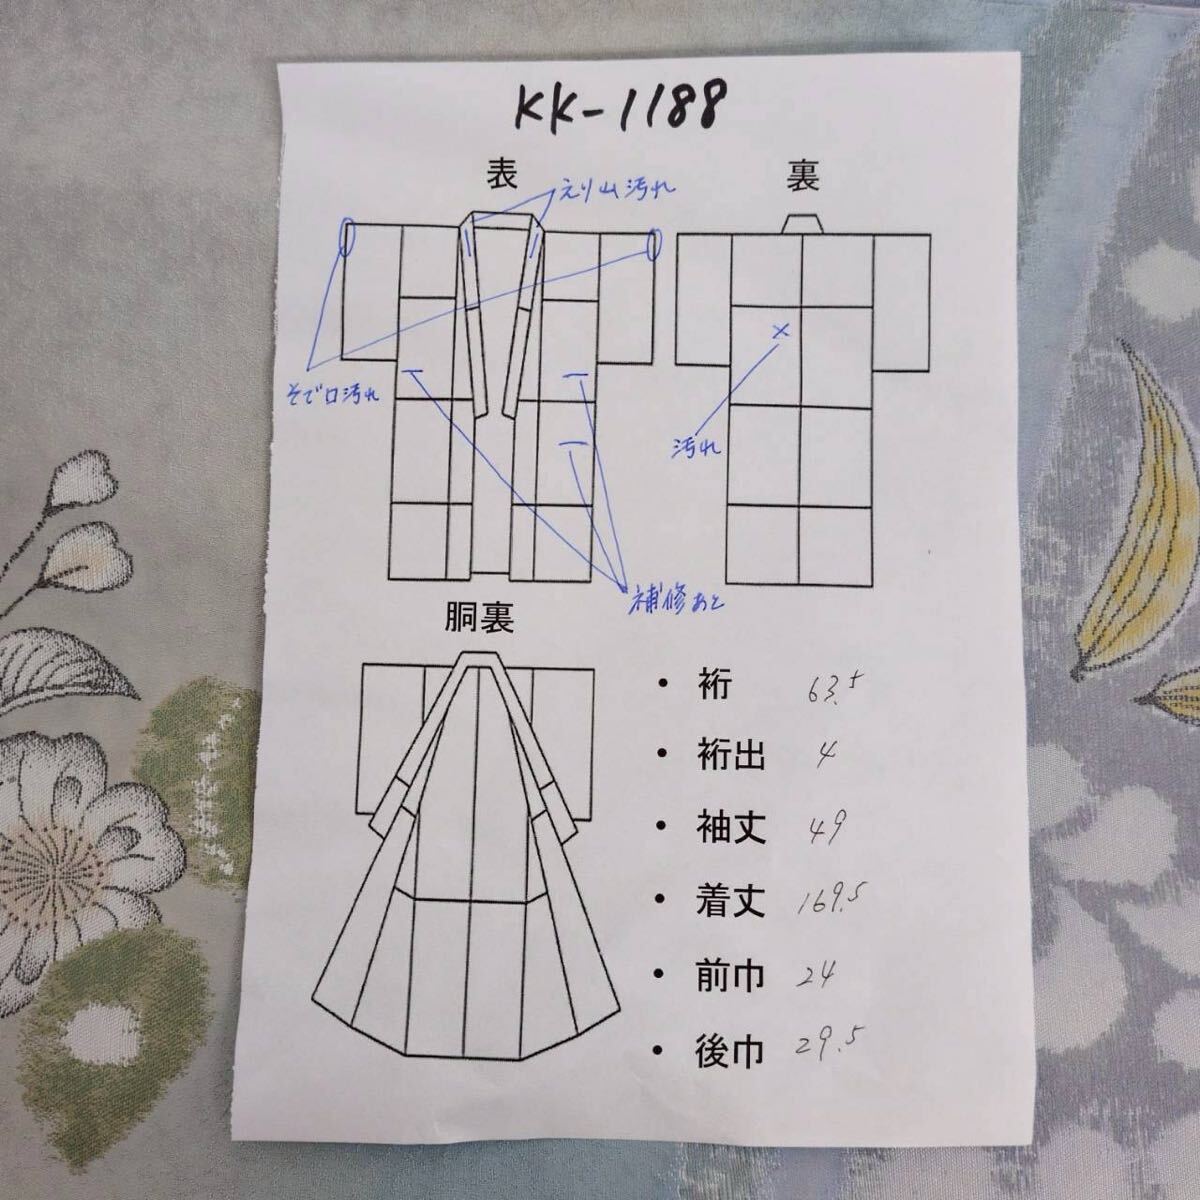 KK-1188
表
裏
えり山汚れ
そで口汚れ
汚れ
補修あと
胴裏
・裄 63.5
・裄出 4
・袖丈 49
・着丈 169.5
・前巾 24
・後巾 29.5